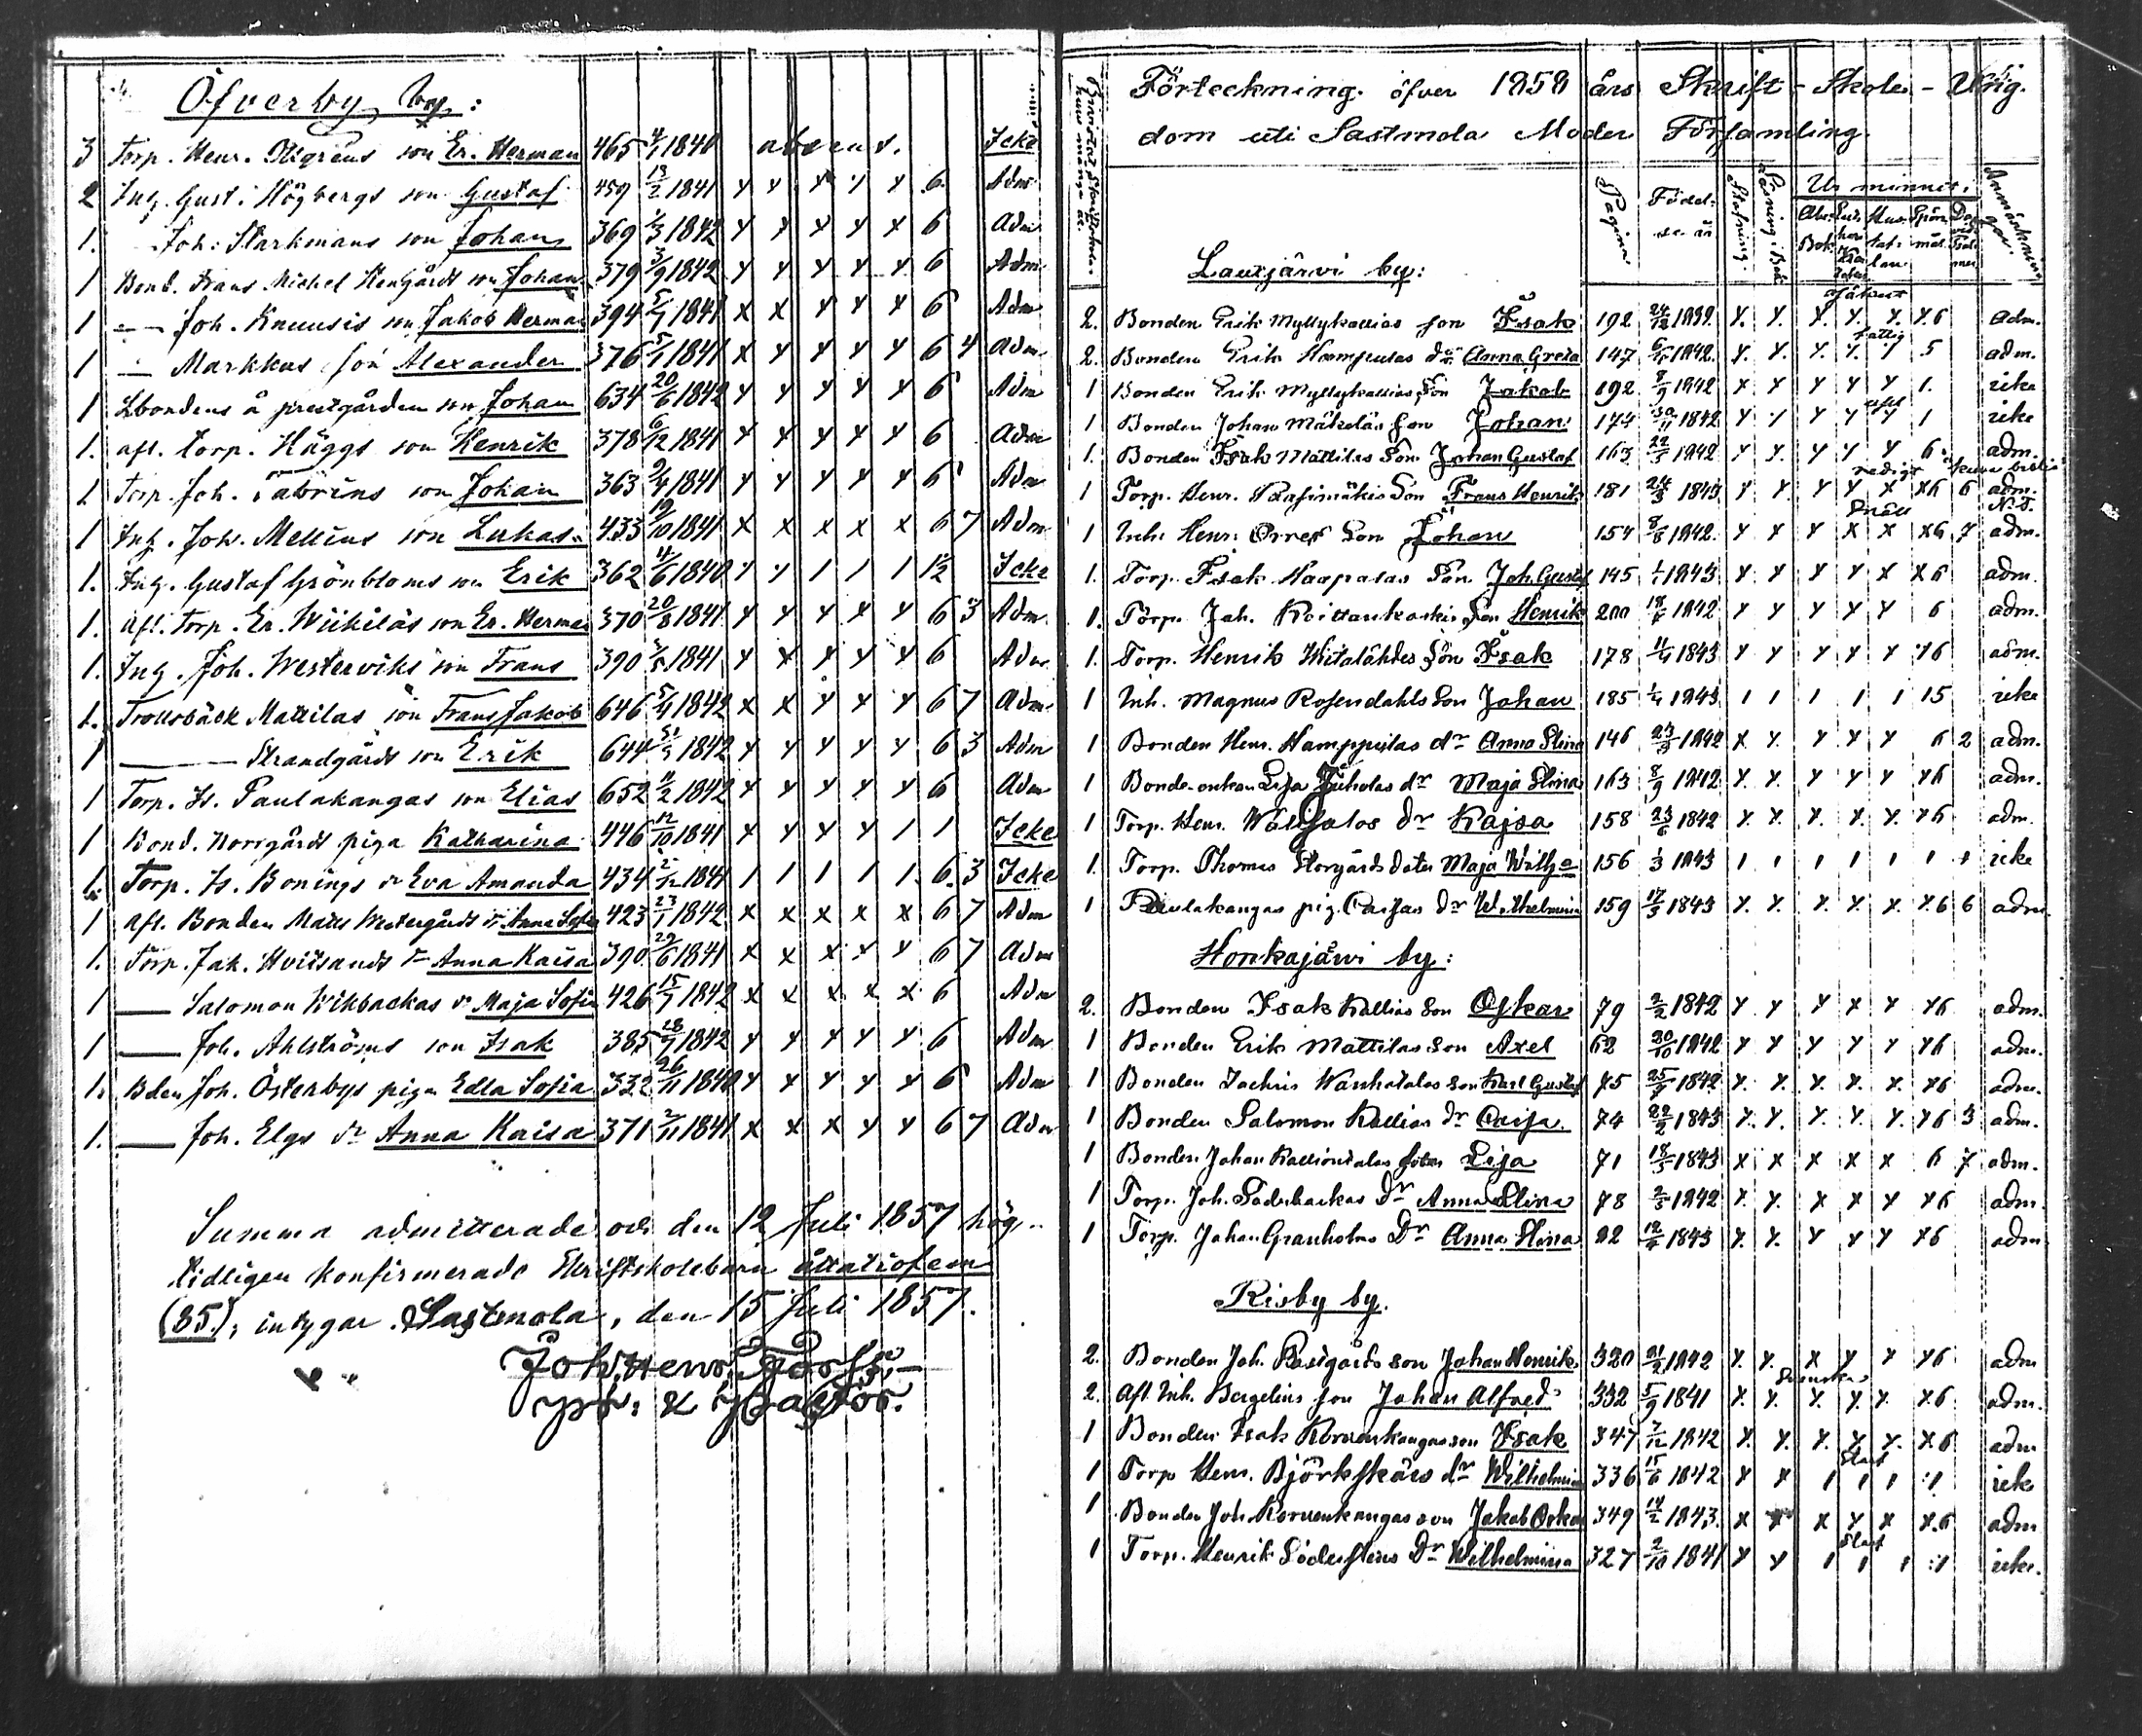 Öfverby by:
3 Torp. Henr. son Er. Herman 465 4/1 1840 absens. Icke
2 Inh. Gust: Högbergs son Gustaf 459 13/2 1841 x x x x x 6 Adm
1. Joh: Starkmans son Johan 369 1/3 1842 x x x x x 6 Adm
1 Bond. Frans Michel Stengårds son Johan 379 3/9 1842 x x x x x 6 Adm
1 — Joh. Knuusis son Jakob Herman 394 5/7 1841 x x x x x 6 Adm
1 — Markkus son Alexander 376 5/1 1841 x x x x x 6 4 Adm
1 Lbondens å prestgården son Johan 634 20/6 1842 x x x x x 6 Adm
1. afl. torp. Häggs son Henrik 378 6/12 1841 x x x x x 6 Adm
1 Torp. Joh. Tabrins son Johan 363 9/4 1841 x x x x x 6 Adm
1 Inh. Joh. Mellins son Lukas 433 19/10 1841 x x x x x 6 7 Adm
1. Inh. Gustaf Grönbloms son Erik 362 11/6 1840 x x 1 1 1 1½ Icke
1. Afl. Torp. Er. Wiikiläs son Er. Herman 370 20/8 1841 x x x x x 6 3 Adm
1. Inh. Joh. Westerviks son Frans 390 3/5 1841 x x x x x 6 Adm
1. Trollsbäck Mattilas son Frans Jakob 646 5/4 1842 x x x x x 6 7 Adm
1 — Strandgårds son Erik 644 1842 x x x x x 6 3 Adm
1 Torp. Is. Paulakangas son Elias 652 11/2 1842 x x x x x 6 Adm
1 Bond. Norrgårds piga Katharina 446 12/10 1841 x x x x 1 1 Icke
1. Torp. Is. Bonings dr Eva Amanda 434 2/12 1841 1 1 1 1 1. 6. 3 Icke
1 afl. Bonden Matts Westergårds dr Anna Sofia 423 23/1 1842 x x x x x 6 7 Adm
1. Torp. Jak. Hvitsands dr Anna Kaisa 390 29/6 1841 x x x x x 6 7 Adm
1 — Salomon Wikbackas dr Maja Sofia 426 15/7 1842 x x x x x 6 Adm
1 — Joh. Ahlströms son Isak 385 28/7 1842 x x x x x 6 Adm
1. Bden Joh. Österbys piga Edla Sofia 332 26/11 1840 x x x x x 6 Adm
1. — Joh. Elgs dr Anna Kaisa 371 2/11 1841 x x x x x 6 7 Adm
Summa admitterade och den 12 Juli 1857 hög-
tidligen konfirmerade Skriftskolebarn åttatiofem
(85), intygar. Sastmola, den 15 Juli 1857.
Joh. Henr. Forss.
Förteckning öfver 1858 års Skrift-Skole-Ung-
dom uti Sastmola Moder Församling.
Pagina. Född-
Stafning. Läsning i Bok Ur minnet: Anmärkningar.
Lauxjärvi by:
2. Bonden Erik Myllykallias son Isak 192 24/12 1839. x. x. x. x. x. x6 adm.
2. Bonden Erik Hamputas dr Anna Greta 147 1842. x. x. x. x. x 5 adm.
1 Bonden Erik Myllykallias son Jakob 192 8/9 1842 x x x x x 1. icke
1 Bonden Johan Mäkeläs son Johan 174 30/11 1842 x x x x x 1 icke
1. Bonden Isak Mattilas Son Johan Gustaf 163 1842 x x. x x x 6. adm.
1 Torp. Henr. son Frans Henrik 181 24/3 1843 x x. x x x x6 6 adm.
N. T.
1 Inh. Henr: Orres Son Johan 154 8/6 1842. x x x x x x6 7 adm.
1. Torp. Isak Haapalas son Joh. Gustaf 145 1/1 1843 x x x x x x6 adm.
1. Torp. Joh. Koittankoskis son Henrik 200 1842 x x x x x 6 adm.
1. Torp. Henrik Witalähdes Son Isak 178 11/4 1843 x x x x x x6 adm.
1 Inh. Magnus Rosendahls Son Johan 185 1843 1 1 1 1 1 15 icke
1 Bonden Henr. Hamppulas dr Anna Stina 146 23/3 1842 x x. x x x 6 2 adm.
1 Bonde enkan Lisa Juholas dr Maja Stina 163 8/9 1842 x. x. x. x. x x6 adm.
1 Torp. Henr. Wälisalos dr Kajsa 158 23/6 1842 x. x. x. x. x. x6 adm.
1. Torp. Thomas Storgårds doter Maja Wilha 156 1/3 1843 1 1 1 1 1 1 1 icke
1 Paulakangas pig. Caisas dr Wilhelmina 159 17/3 1843 x. x. x. x. x. x.6 6 adm.
Honkajärvi by:
2. Bonden Isak Kallias Son Oskar 79 2/2 1842 x x x x x x6 adm.
1 Bonden Erik Mattilas son Axel 62 30/10 1842 x x x x x x6 adm.
1 Bonden Zachris Wanhatalos son Karl Gustaf 75 25/7 1842 x. x. x. x. x. x6 adm.
1 Bonden Salomon Kallias dr Caisa. 74 22/2 1843 x. x. x. x. x. x6 3 adm.
1 Bonden Johan Kalliontalos doter Lisa 71 18/5 1843 x x x x x 6 7 adm.
1 Torp. Joh. Söderbackas dr Anna Stina 78 2/5 1842 x. x. x x x x6 adm.
1 Torp. Johan Granholms Dr Anna Stina 22 1843 x. x. x x x x6 adm
Risby by.
2. Bonden Joh. Rosgårds son Johan Henrik 320 21/2 1842 x. x. x x x x6 adm
Svenska
2. Afl. Inh. Bergelins son Johan Alfred 332 5/9 1841 x. x. x. x. x. x.6 adm.
1 Bonden Isak Korvenkangas son Isak 347 7/12 1842 x. x. x. x x. x6 adm
Slät
1 Torp Henr. Björkskärs dr Wilhelmina 336 15/6 1842 x x 1 1 1 1 icke
1 Bonden Joh. Korvenkangas son Jakob Oskar 349 14/2 1843. x x x x x x.6 adm
Slät
1 Torp. Henrik Södersteins Dr Wilhelmina 327 2/10 1841 x x 1 1 1 1 icke.